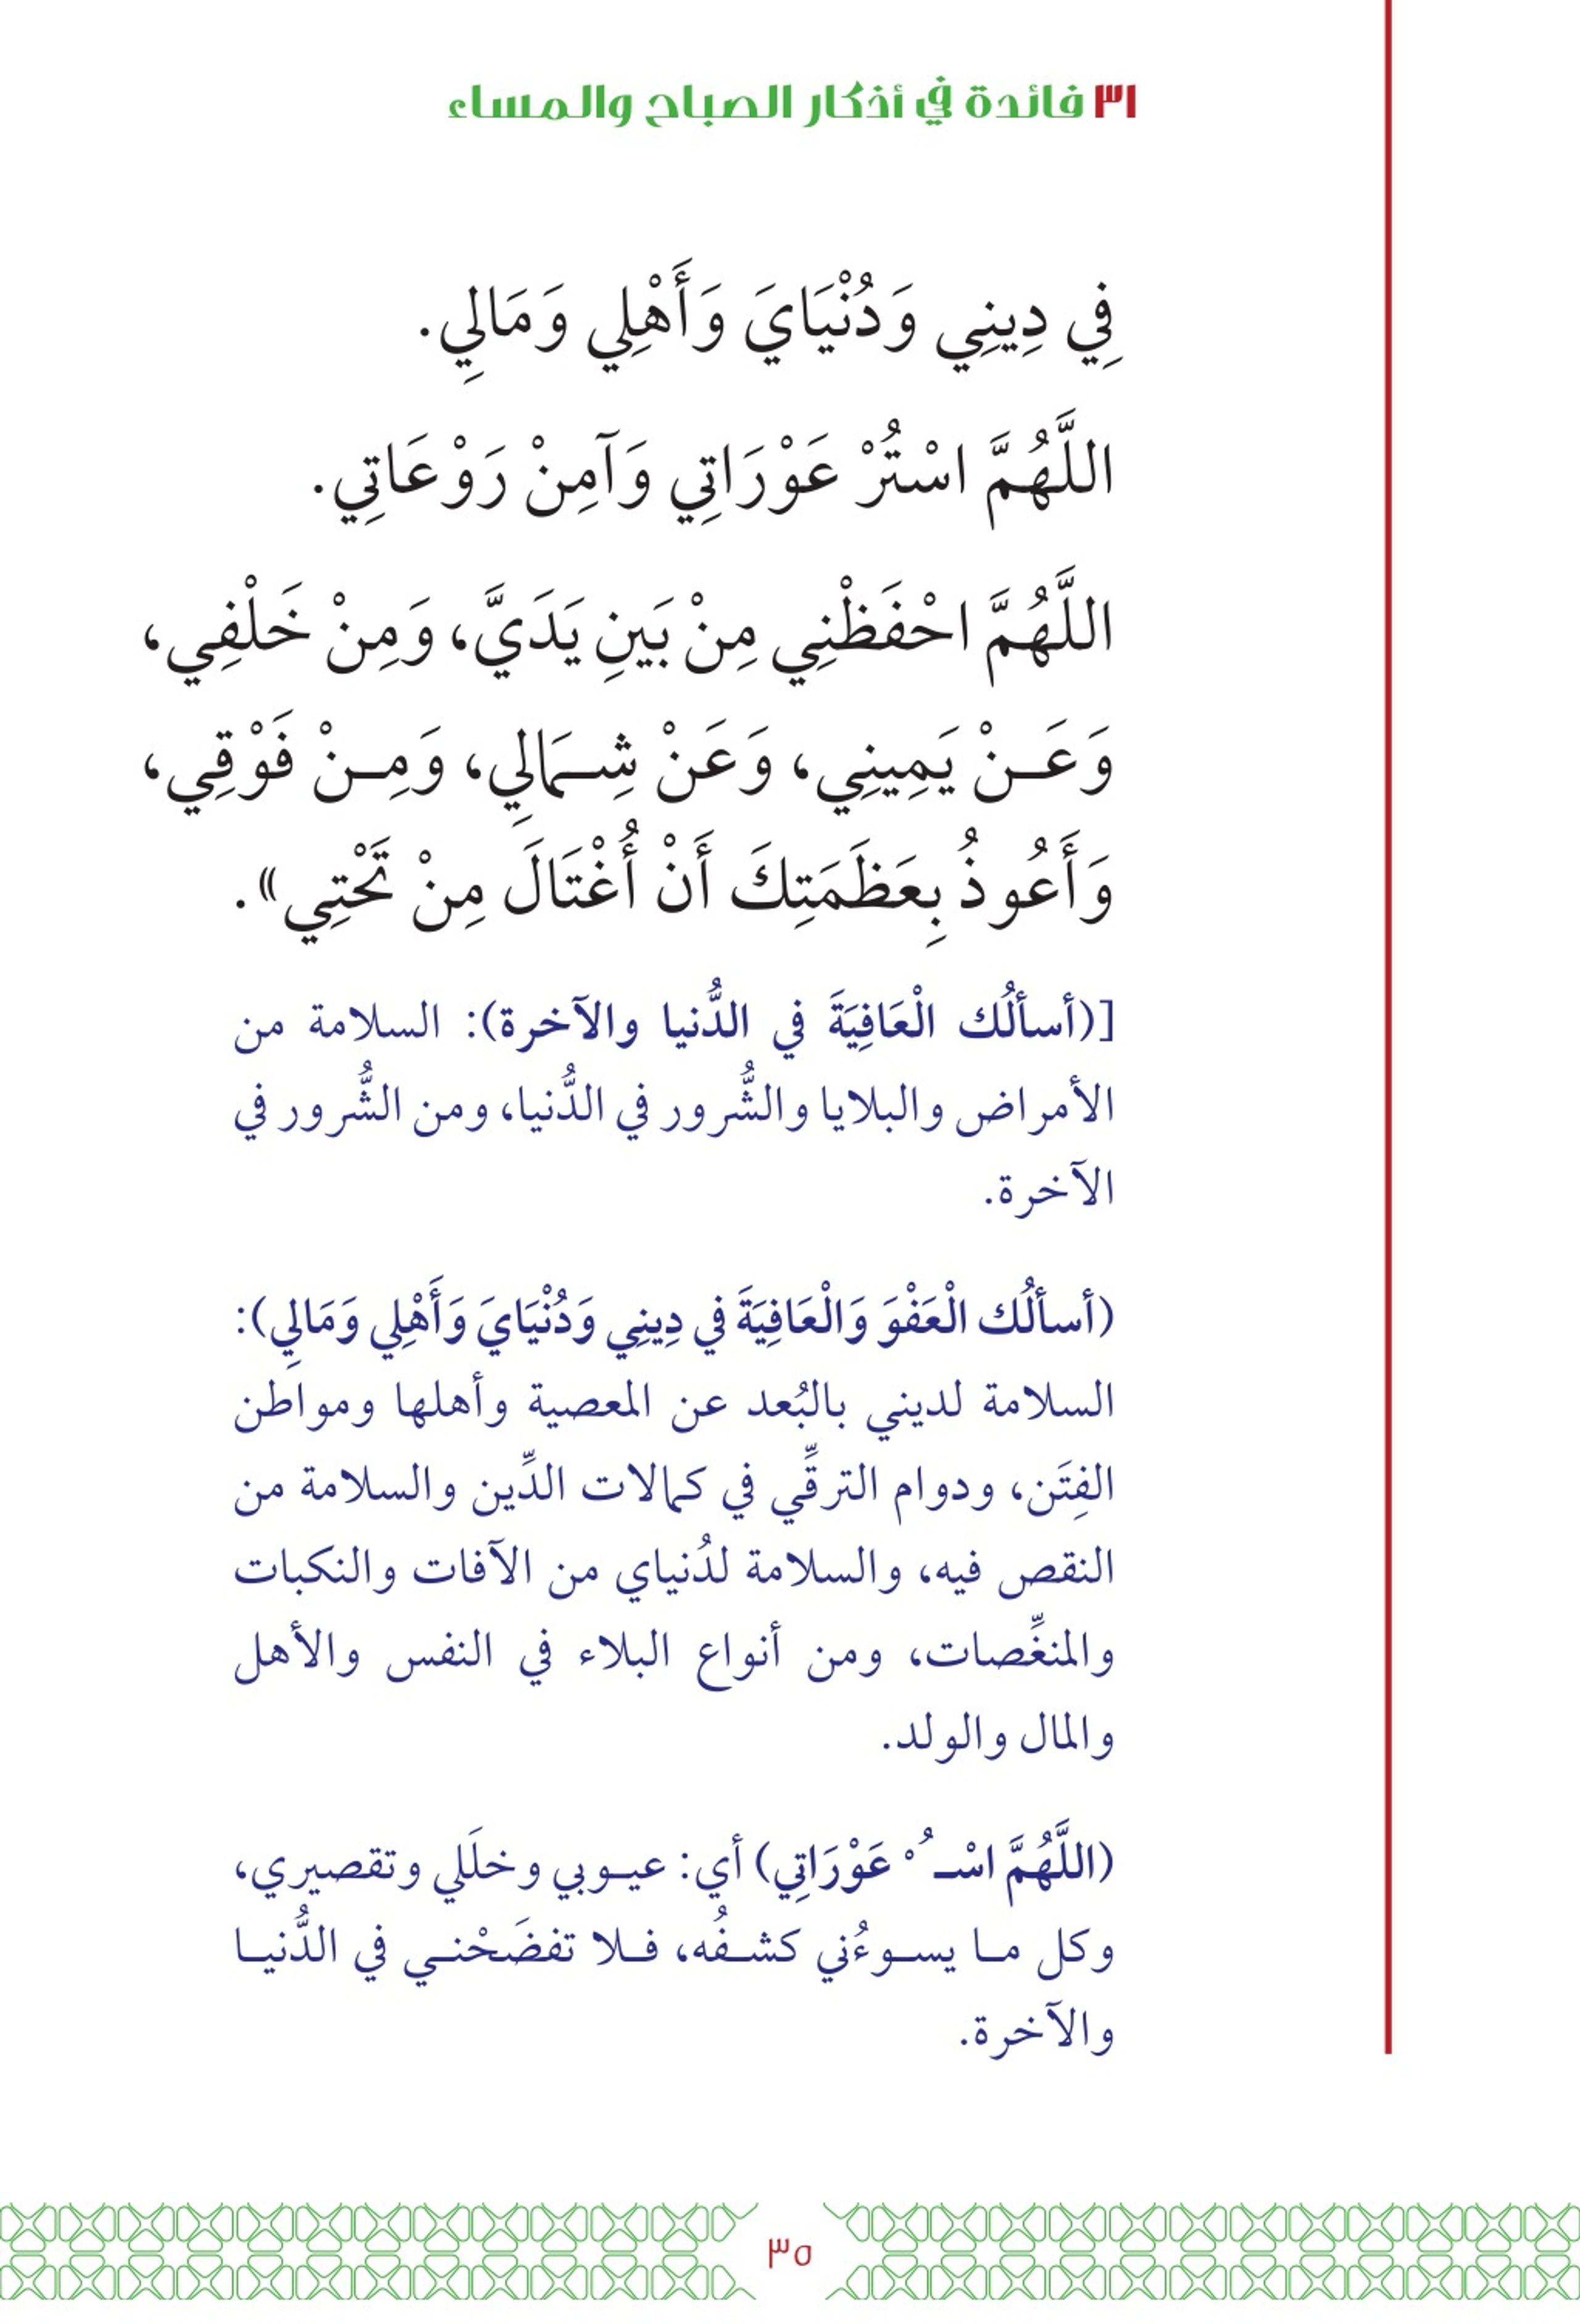 ٣١ فائدة في أذكار الصباح والمساء
فِي دِينِي وَدُنْيَايَ وَأَهْلِي وَمَالِي.
اللَّهُمَّ اسْتُرْ عَوْرَاتِي وَآمِنْ رَوْعَاتِي.
اللَّهُمَّ احْفَظْنِي مِنْ بَينِ يَدَيَّ، وَمِنْ خَلْفِي،
وَعَـنْ يَمِينِي، وَعَنْ شِـمَالِي، وَمِـنْ فَوْقِي،
وَأَعُوذُ بِعَظَمَتِكَ أَنْ أُغْتَالَ مِنْ تَحْتِي».
[(أسألُك الْعَافِيَةَ في الدُّنيا والآخرة): السلامة من
الأمراض والبلايا والشُّرور في الدُّنيا، ومن الشُّرور في
الآخرة.
(أسألُك الْعَفْوَ وَالْعَافِيَةَ في دِينِي وَدُنْيَايَ وَأَهْلِي وَمَالِي):
السلامة لديني بالبُعد عن المعصية وأهلها ومواطن
الفِتَن، ودوام الترقِّي في كمالات الدِّين والسلامة من
النقص فيه، والسلامة لدُنياي من الآفات والنكبات
والمنغِّصات، ومن أنواع البلاء في النفس والأهل
والمال والولد.
(اللَّهُمَّ اسْـ ُ ْ عَوْرَاتِي) أي: عيـوبي وخلَلي وتقصيري،
وكل مـا يسـوءُني كشـفُه، فـلا تفضَحْنـي في الدُّنيـا
والآخرة.
٣٥